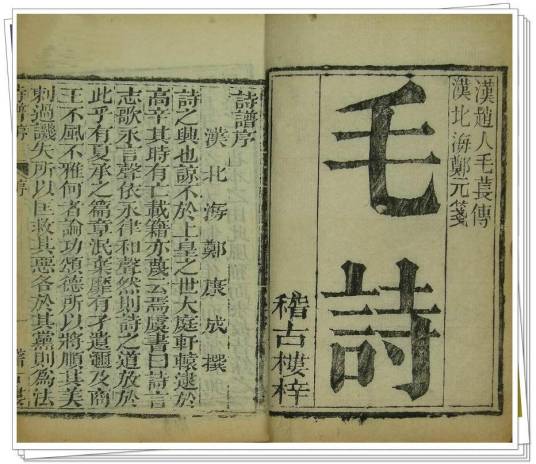 漢趙人毛萇傳
漢北海鄭元箋
毛詩
稽古樓梓
詩譜序
漢北海鄭康成撰
詩之興也諒不於上皇之世大庭軒轅逮於
高辛其時有亡載籍亦蔑云焉虞書曰詩言
志歌永言聲依永律和聲然則詩之道放於
此乎有夏承之篇章泯棄靡有孑遺邇及商
王不風不雅何者論功頌德所以將順其美
刺過譏失所以匡救其惡各於其黨則為法